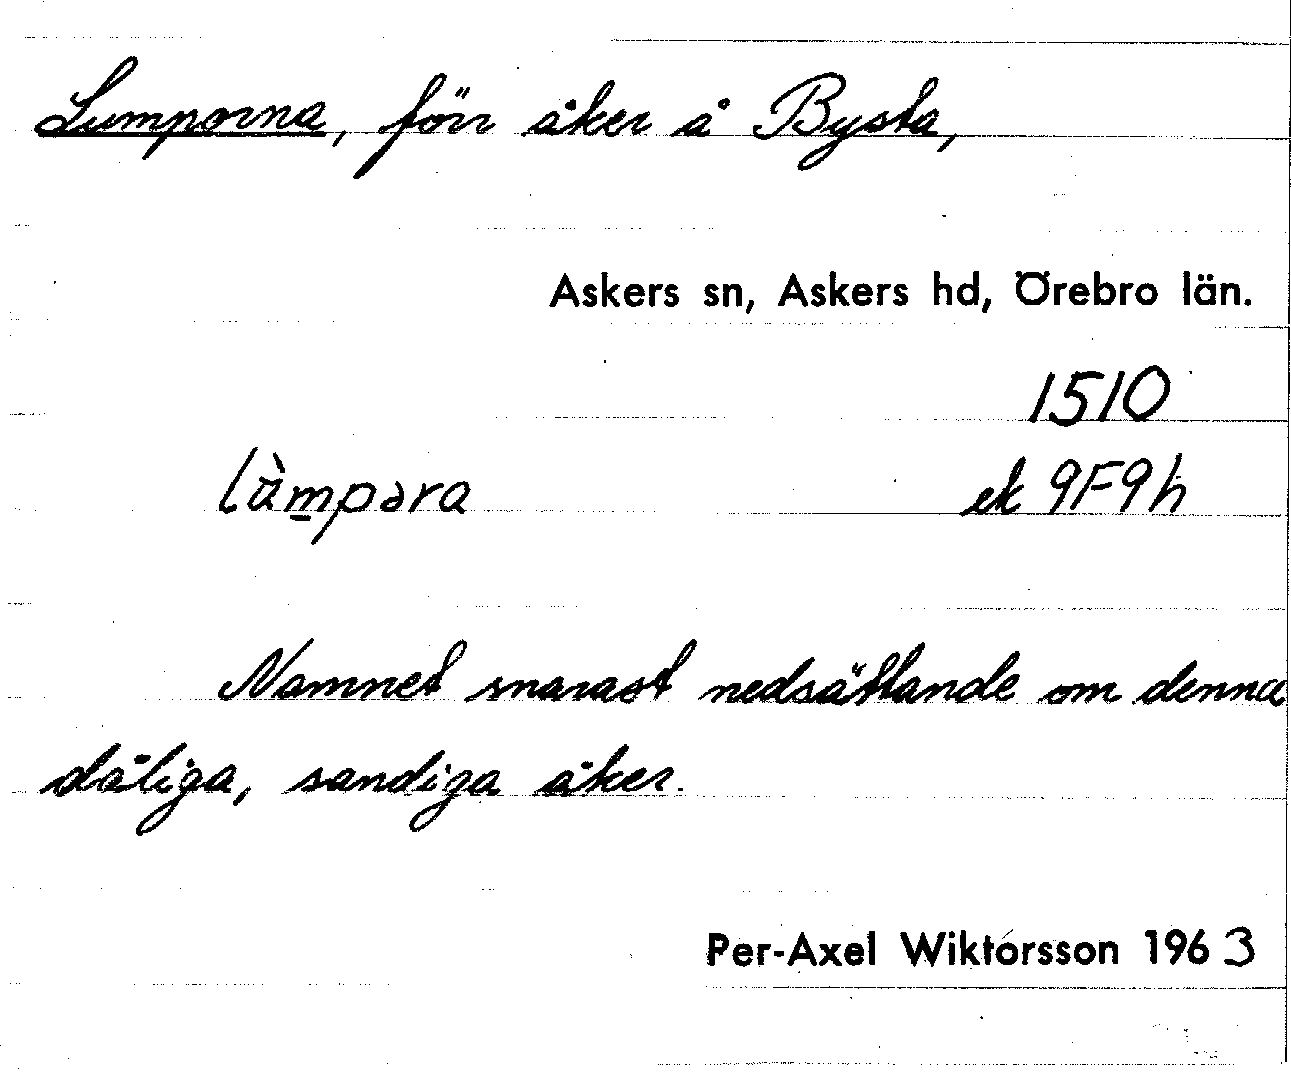 Lumporna, förr åker å Bysta,
Askers sn, Askers hd, Örebro län.
1510
làmpəra
ek 9F9h
Namnet snarast nedsättande om denna
dåliga, sandiga åker.
Per-Axel Wiktorsson 1963